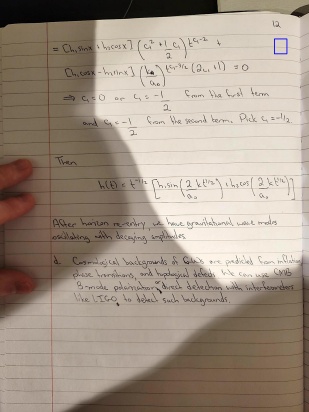 12
= [h₁sinx + h₂cosx] (c₁² + ½ c₁) t^(c₁-2) +
[h₁cosx - h₂sinx] (k/a₀) t^(c₁-3/2) (2c₁+1) = 0
⇒ c₁ = 0 or c₁ = -1/2 from the first term
and c₁ = -1/2 from the second term. Pick c₁ = -1/2
Then
h(t) = t^(-1/2) [h₁ sin(2kt^(1/2)/a₀) + h₂cos(2kt^(1/2)/a₀)]
After horizon re-entry, we have gravitational wave modes
oscillating with decaying amplitudes
d. Cosmological backgrounds of GWs are predicted from inflation
phase transitions, and topological defects. We can use CMB
B-mode polarization or direct detection with interferometers
like LIGO to detect such backgrounds.